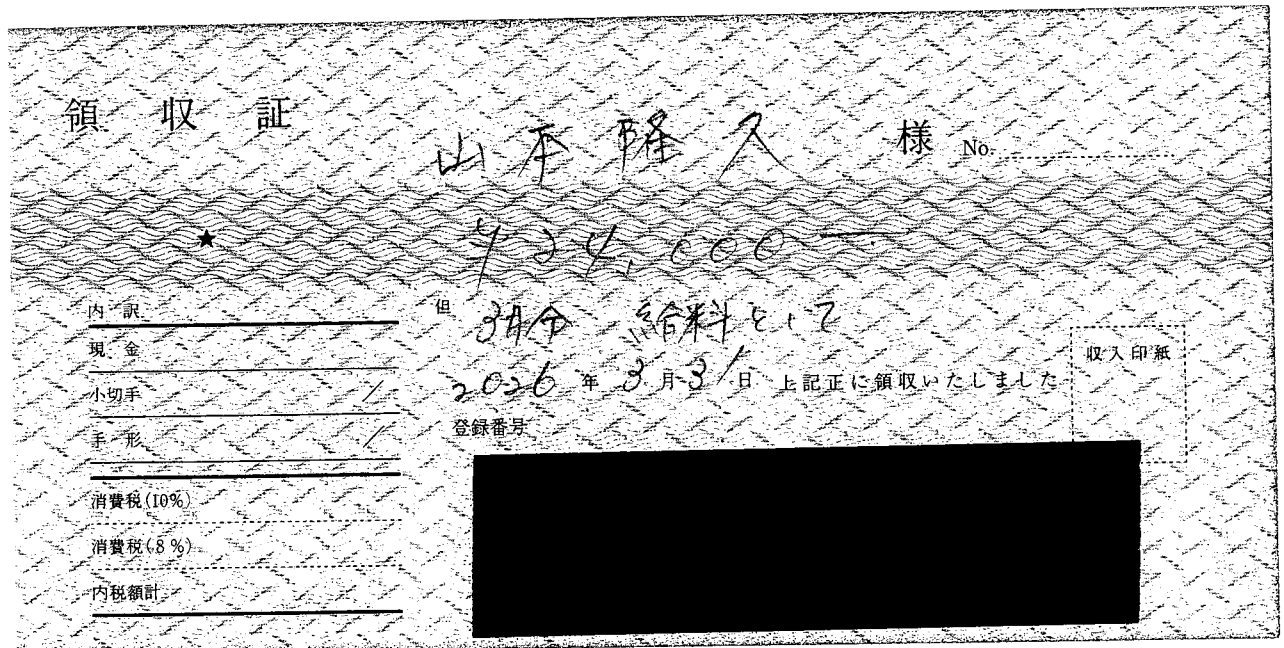 領収証
山本隆久 様 No.
★
¥24,000-
但 3月分 給料として
2026年3月31日 上記正に領収いたしました
収入印紙
登録番号
内訳
現金
小切手 /
手形 /
消費税(10%)
消費税(8%)
内税額計